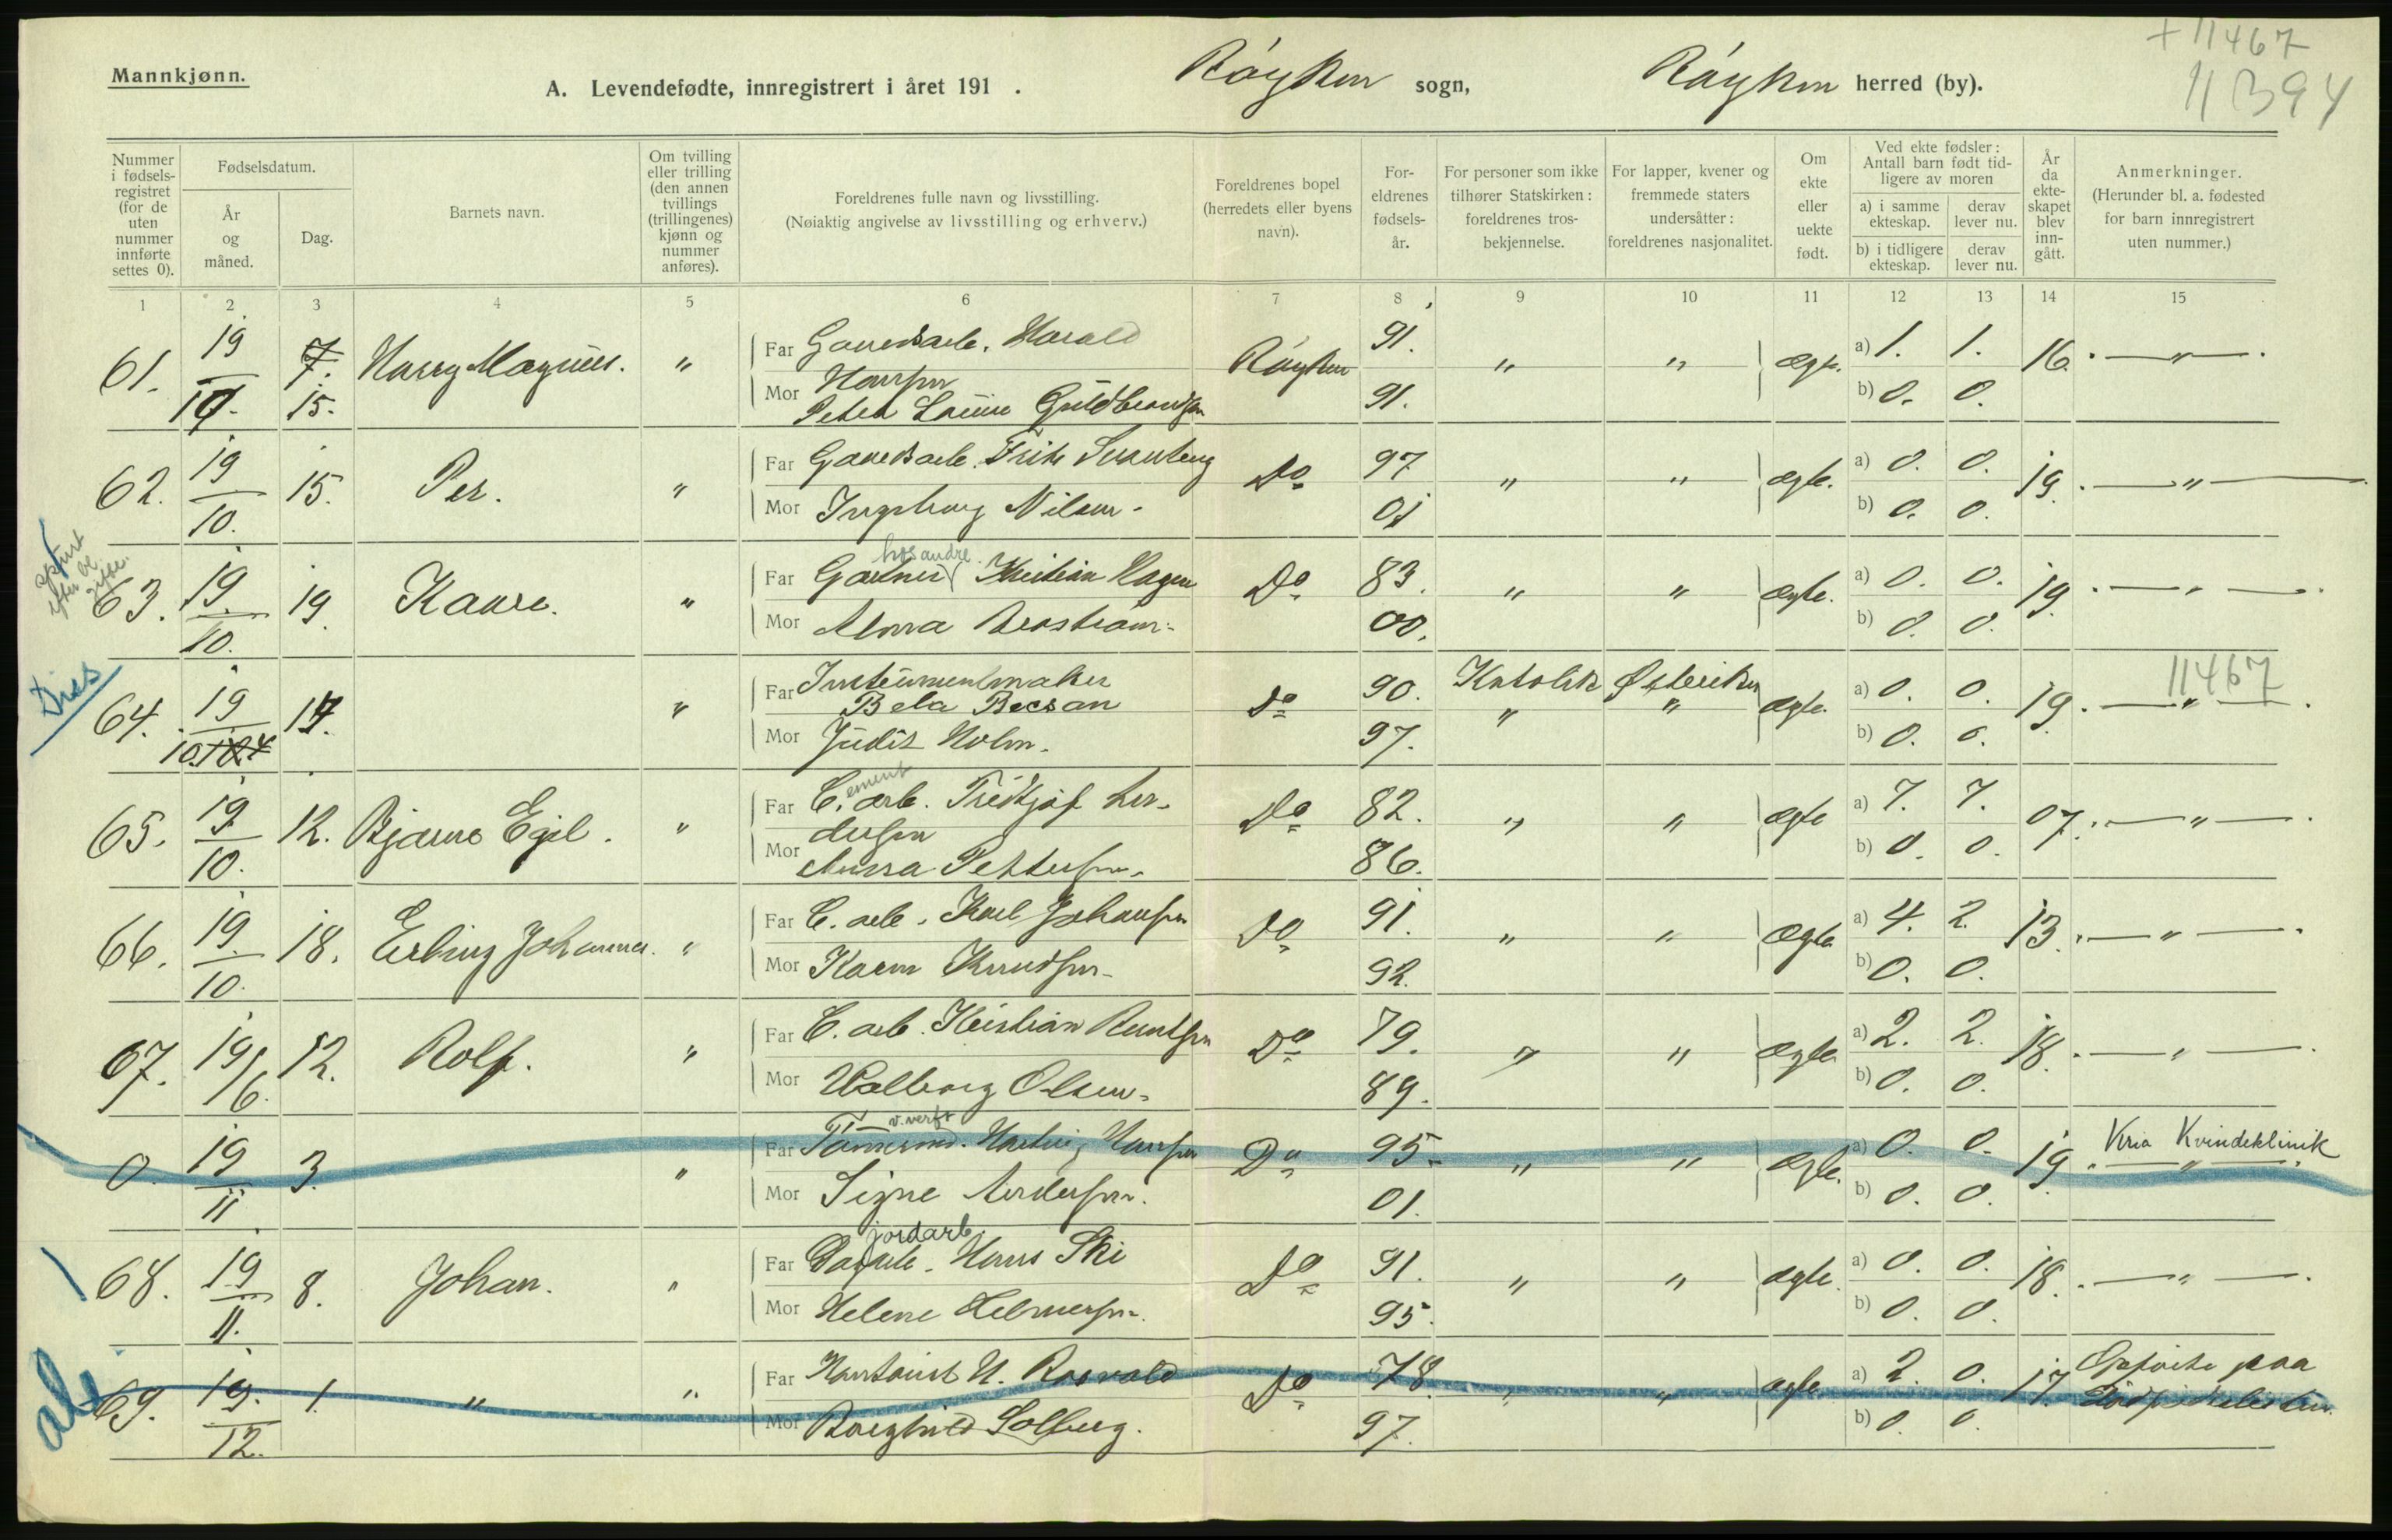 + 11467
11394
Mannkjønn.
A. Levendefødte, innregistrert i året 191 . Røyken sogn, Røyken herred (by).
Nummer i fødsels-registret (for de uten nummer innførte settes 0).
Fødselsdatum.
År og måned.
Dag.
Barnets navn.
Om tvilling eller trilling (den annen tvillings (trillingenes) kjønn og nummer anføres).
Foreldrenes fulle navn og livsstilling.
(Nøiaktig angivelse av livsstilling og erhverv.)
Foreldrenes bopel (herredets eller byens navn).
For-eldrenes fødsels-år.
For personer som ikke tilhører Statskirken: foreldrenes tros-bekjennelse.
For lapper, kvener og fremmede staters undersåtter: foreldrenes nasjonalitet.
Om ekte eller uekte født.
Ved ekte fødsler: Antall barn født tid-ligere av moren
a) i samme ekteskap. derav lever nu.
b) i tidligere ekteskap. derav lever nu.
År da ekte-skapet blev inn-gått.
Anmerkninger.
(Herunder bl. a. fødested for barn innregistrert uten nummer.)
1 2 3 4 5 6 7 8 9 10 11 12 13 14 15
61. 19/10. 7. 15. Harry Magnus. " Far Gaardsarb. Harald Røyken 91. " " ægte. a) 1. 1. 16. — " —
Hansen
Mor Petra Louise Guldbrandsen 91. b) 0. 0.
62. 19/10. 15. Per. " Far Gaardsarb. Fritz Do 97 " " ægte. a) 0. 0. 19. — " —
Mor Ingeborg Nilsen. 01 b) 0. 0.
hos andre
63. 19/10. 19. Kaare. " Far Gartner Kristian Hagen Do 83. " " ægte. a) 0. 0. 19. — " —
Mor Alma 00. b) 0. 0.
Dies
11467
64. 19/10. 17. " Far Instrumentmaker Do 90. Katolik Østeriker ægte. a) 0. 0. 19. — " —
Bela Becsan " "
Mor Judit Holm. 97. b) 0. 0.
65. 19/10. 12. Bjarne Egil. " Far C.ement arb. Fridtjof An- Do 82. " " ægte a) 7. 7. 07. — " —
dersen
Mor Anna Pettersen. 86. b) 0. 0.
66. 19/10. 18. Erling Johannes. " Far C. arb. Karl Johansen Do 91. " " ægte a) 4. 2. 13. — " —
Mor Karen Knudsen. 92. b) 0. 0.
67. 19/6. 12. Rolf. " Far C. arb. Kristian Do 79. " " ægte a) 2. 2. 18. — " —
Mor Valborg Olsen. 89. b) 0. 0.
v. verft
0. 19/11 3. " Far Tømmermd. Hartvig Hansen Do 95. " " ægte. a) 0. 0. 19. Kria Kvindeklinik
Mor Signe Andersen. 01. b) 0. 0.
jordarb.
68. 19/11. 8. Johan. " Far Dagarb. Hans Ski Do 91. " " ægte. a) 0. 0. 18. — " —
Mor Helene Helmersen. 95. b) 0. 0.
69. 19/12. 1. " " Far Kontorist H. Rosvald Do 78. " " ægte a) 2. 0. 17. Opførte paa
Mor Borghild Solberg. 97. b) 0. 0.